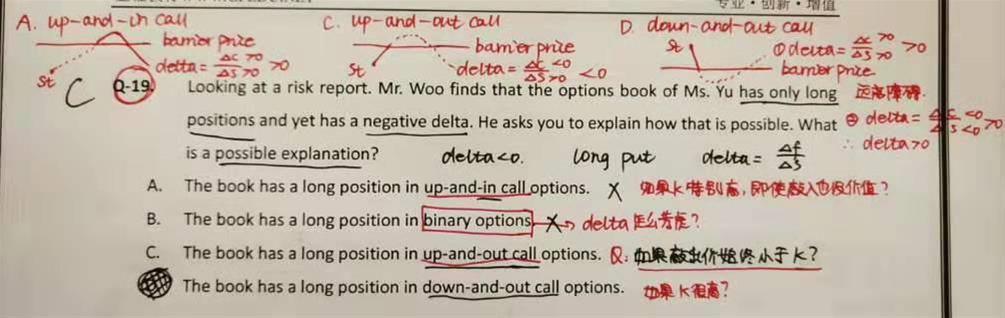 专业·创新·增值
A. up-and-in call
C. up-and-out call
D. down-and-out call
barrier price
delta = ΔC>0/ΔS>0 >0
St
barrier price
St
delta = ΔC<0/ΔS>0 <0
St
①delta = ΔC>0/ΔS>0 >0
barrier price
远离障碍.
② delta = ΔC<0/ΔS<0 >0
∴ delta>0
C Q-19. Looking at a risk report. Mr. Woo finds that the options book of Ms. Yu has only long
positions and yet has a negative delta. He asks you to explain how that is possible. What
is a possible explanation? delta<0. long put delta = Δf/ΔS
A. The book has a long position in up-and-in call options. X 如果K特别高,即使敲入也没价值?
B. The book has a long position in binary options X → delta 怎么考虑?
C. The book has a long position in up-and-out call options. Q: 如果敲出价始终小于K?
The book has a long position in down-and-out call options. 如果K很高?